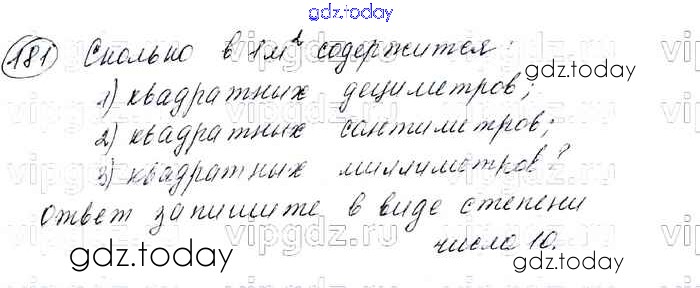 gdz.today
181 Сколько в 1 м² содержится:
gdz.today
1) квадратных дециметров;
2) квадратных сантиметров;
vipgdz.ru
3) квадратных миллиметров?
ответ запишите в виде степени
vipgdz.ru
числа 10.
gdz.today
gdz.today